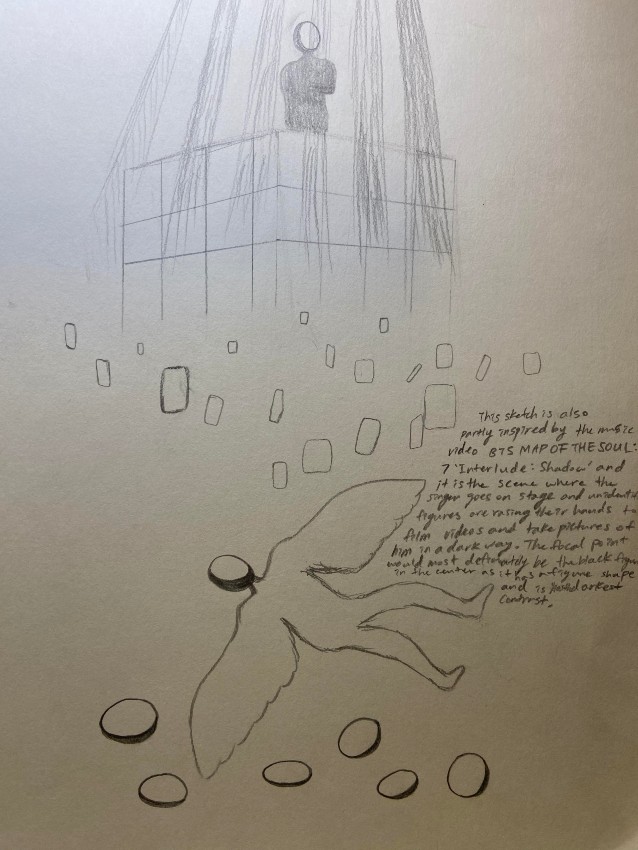 This sketch is also
partly inspired by the music
video BTS MAP OF THE SOUL:
7 'Interlude: Shadow' and
it is the scene where the
singer goes on stage and unidenti
figures are rasing their hands to
film videos and take pictures of
him in a dark way. The focal point
would most definately be the black figure
in the center as it has a figure shape
and is darkest
contrast.